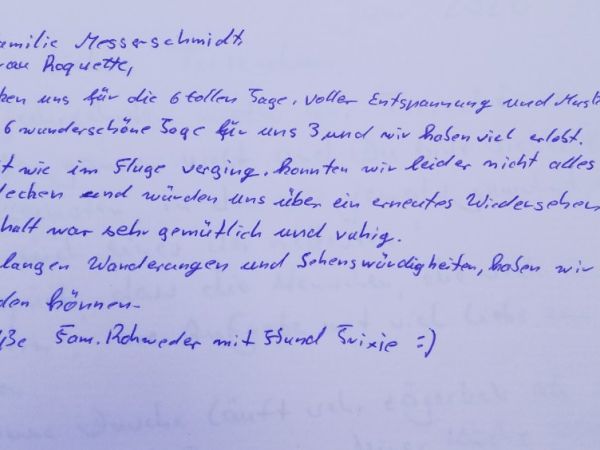 amilie Messerschmidt,
rau Roquette,
ken uns für die 6 tollen Tage, voller Entspannung und
6 wunderschöne Tage für uns 3 und wir haben viel erlebt.
it wie im Fluge verging, konnten wir leider nicht alles
decken und würden uns über ein erneutes Wiedersehen
halt war sehr gemütlich und ruhig.
langen Wanderungen und Sehenswürdigkeiten, haben wir
den können.
ße Fam. Rohweder mit Hund Trixie :)